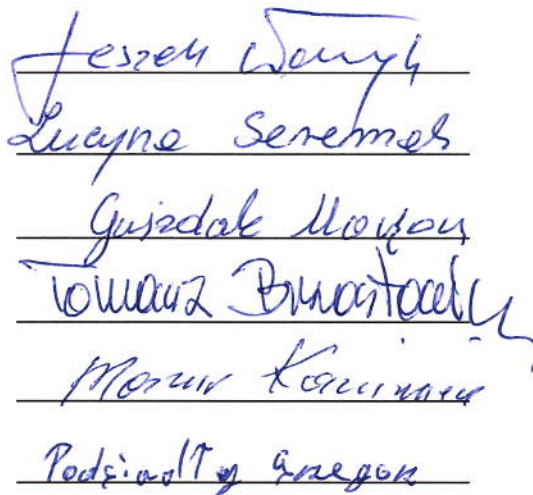 Leszek
Lucyna Seremak
Gwizdak Marian
Tomasz
Mazur Kazimierz
Podsiadły Grzegorz